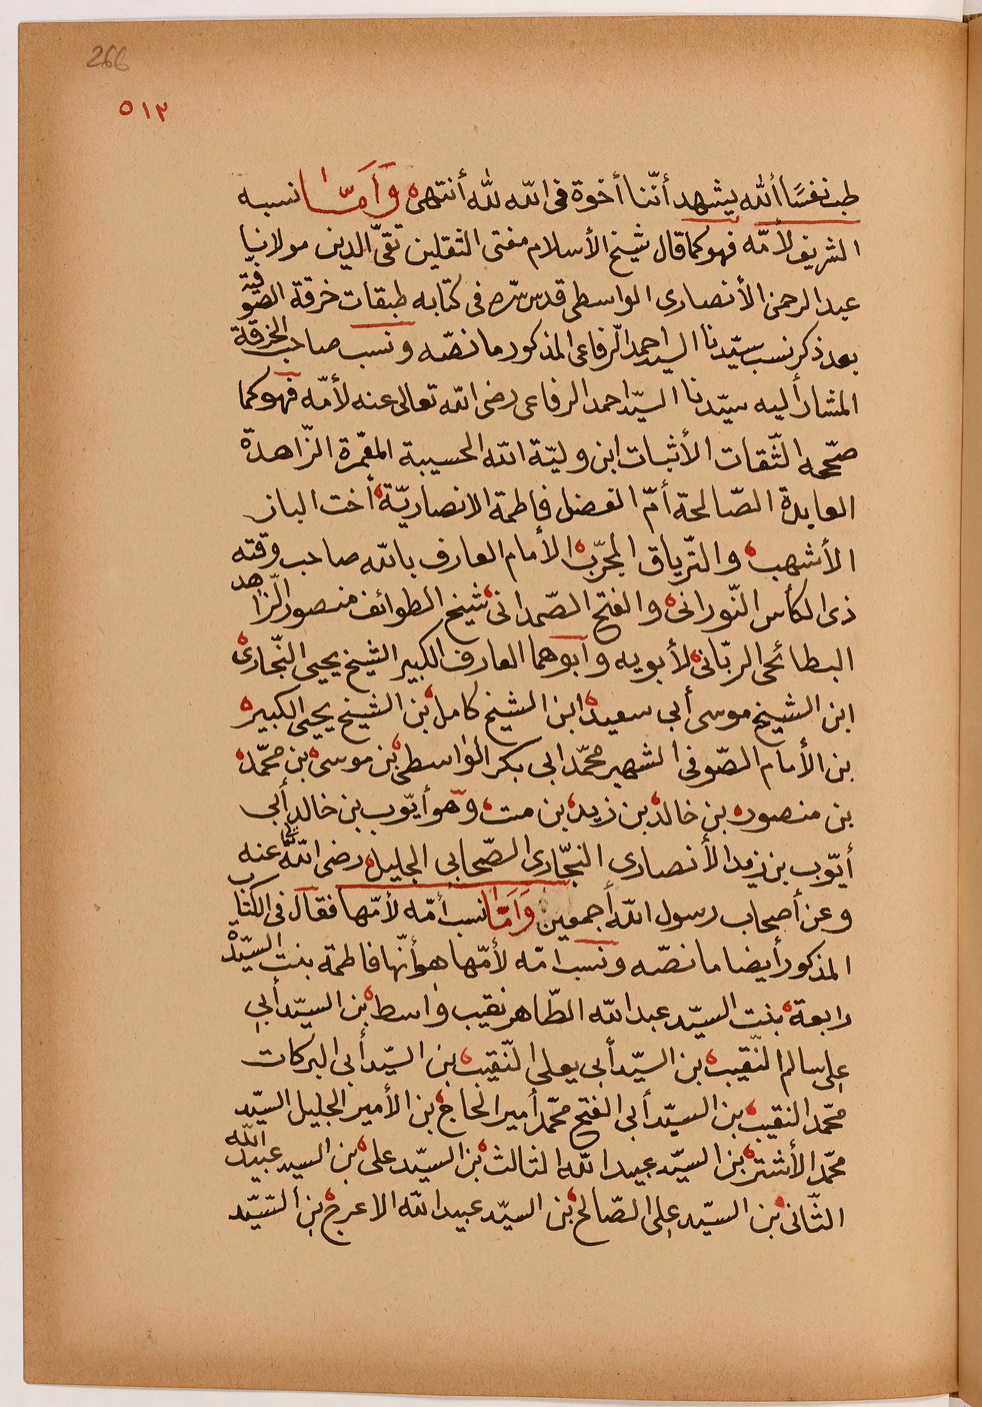 266
٥١٢
طب نفسًا ألله يشهد أنّنا أخوة فى الله لله أنتهى وَأَمَّا نسبه
الشريف لأمّه فهو كما قال شيخ الأسلام مفتى الثقلين تقىّ الدين مولانا
عبد الرحمن الأنصارى الواسطى قدس سّره فى كتابه طبقات خرقة الصّوفية
بعد ذكر نسب سيّدنا السيد احمد الّرفاعى المذكور ما نصّه ونسب صاحب الخرقة
المشار أليه سيّدنا السيّد احمد الرفاعى رضى الله تعالى عنه لأمّه فهو كما
صحّحه الثّقات الأثبات ابن وليّة الله الحسيبة المعمّرة الزّاهدة
العابدة الصّالحة أمّ الفضل فاطمة الانصاريّة أخت الباز
الأشهب والتّرياق المجرّب الأمام العارف بالله صاحب وقته
ذى الكأس النّورانى والفتح الصّمدانى شيخ الطوائف منصور الزّاهد
البطائحى الربّانى لأبويه وأبوهما العارف الكبير الشيخ يحيى النّجارى
ابن الشيخ موسى أبى سعيد ابن الشيخ كامل بن الشيخ يحيى الكبير
بن الأمام الصّوفى الشهير محمّد ابى بكر الواسطى بن موسى بن محمّد
بن منصور بن خالد بن زيد بن مت وهو أيّوب بن خالد أبى
أيّوب بن زيد الأنصارى النجّارى الصّحابى الجليل رضى الله عنه
وعن أصحاب رسول الله أجمعين وَأَمَّا نسب أمّه لأمّها فقال فى الكتاب
المذكور أيضا ما نصّه ونسب امّه لأمّها هو أنّها فاطمة بنت السيّدة
رابعة بنت السيّد عبد الله الطّاهر نقيب واسط بن السيّد أبى
على سالم النّقيب بن السيّد أبى يعلى النّقيب بن السيّد أبى البركات
محمّد النقيب بن السيّد أبى الفتح محمّد أمير الحاج بن الأمير الجليل السيّد
محمّد الأشتر بن السيّد عبيد الله الثالث بن السيّد على بن السيد عبيد الله
الثّانى بن السيّد على الصّالح بن السيّد عبيد الله الاعرج بن السّيّد